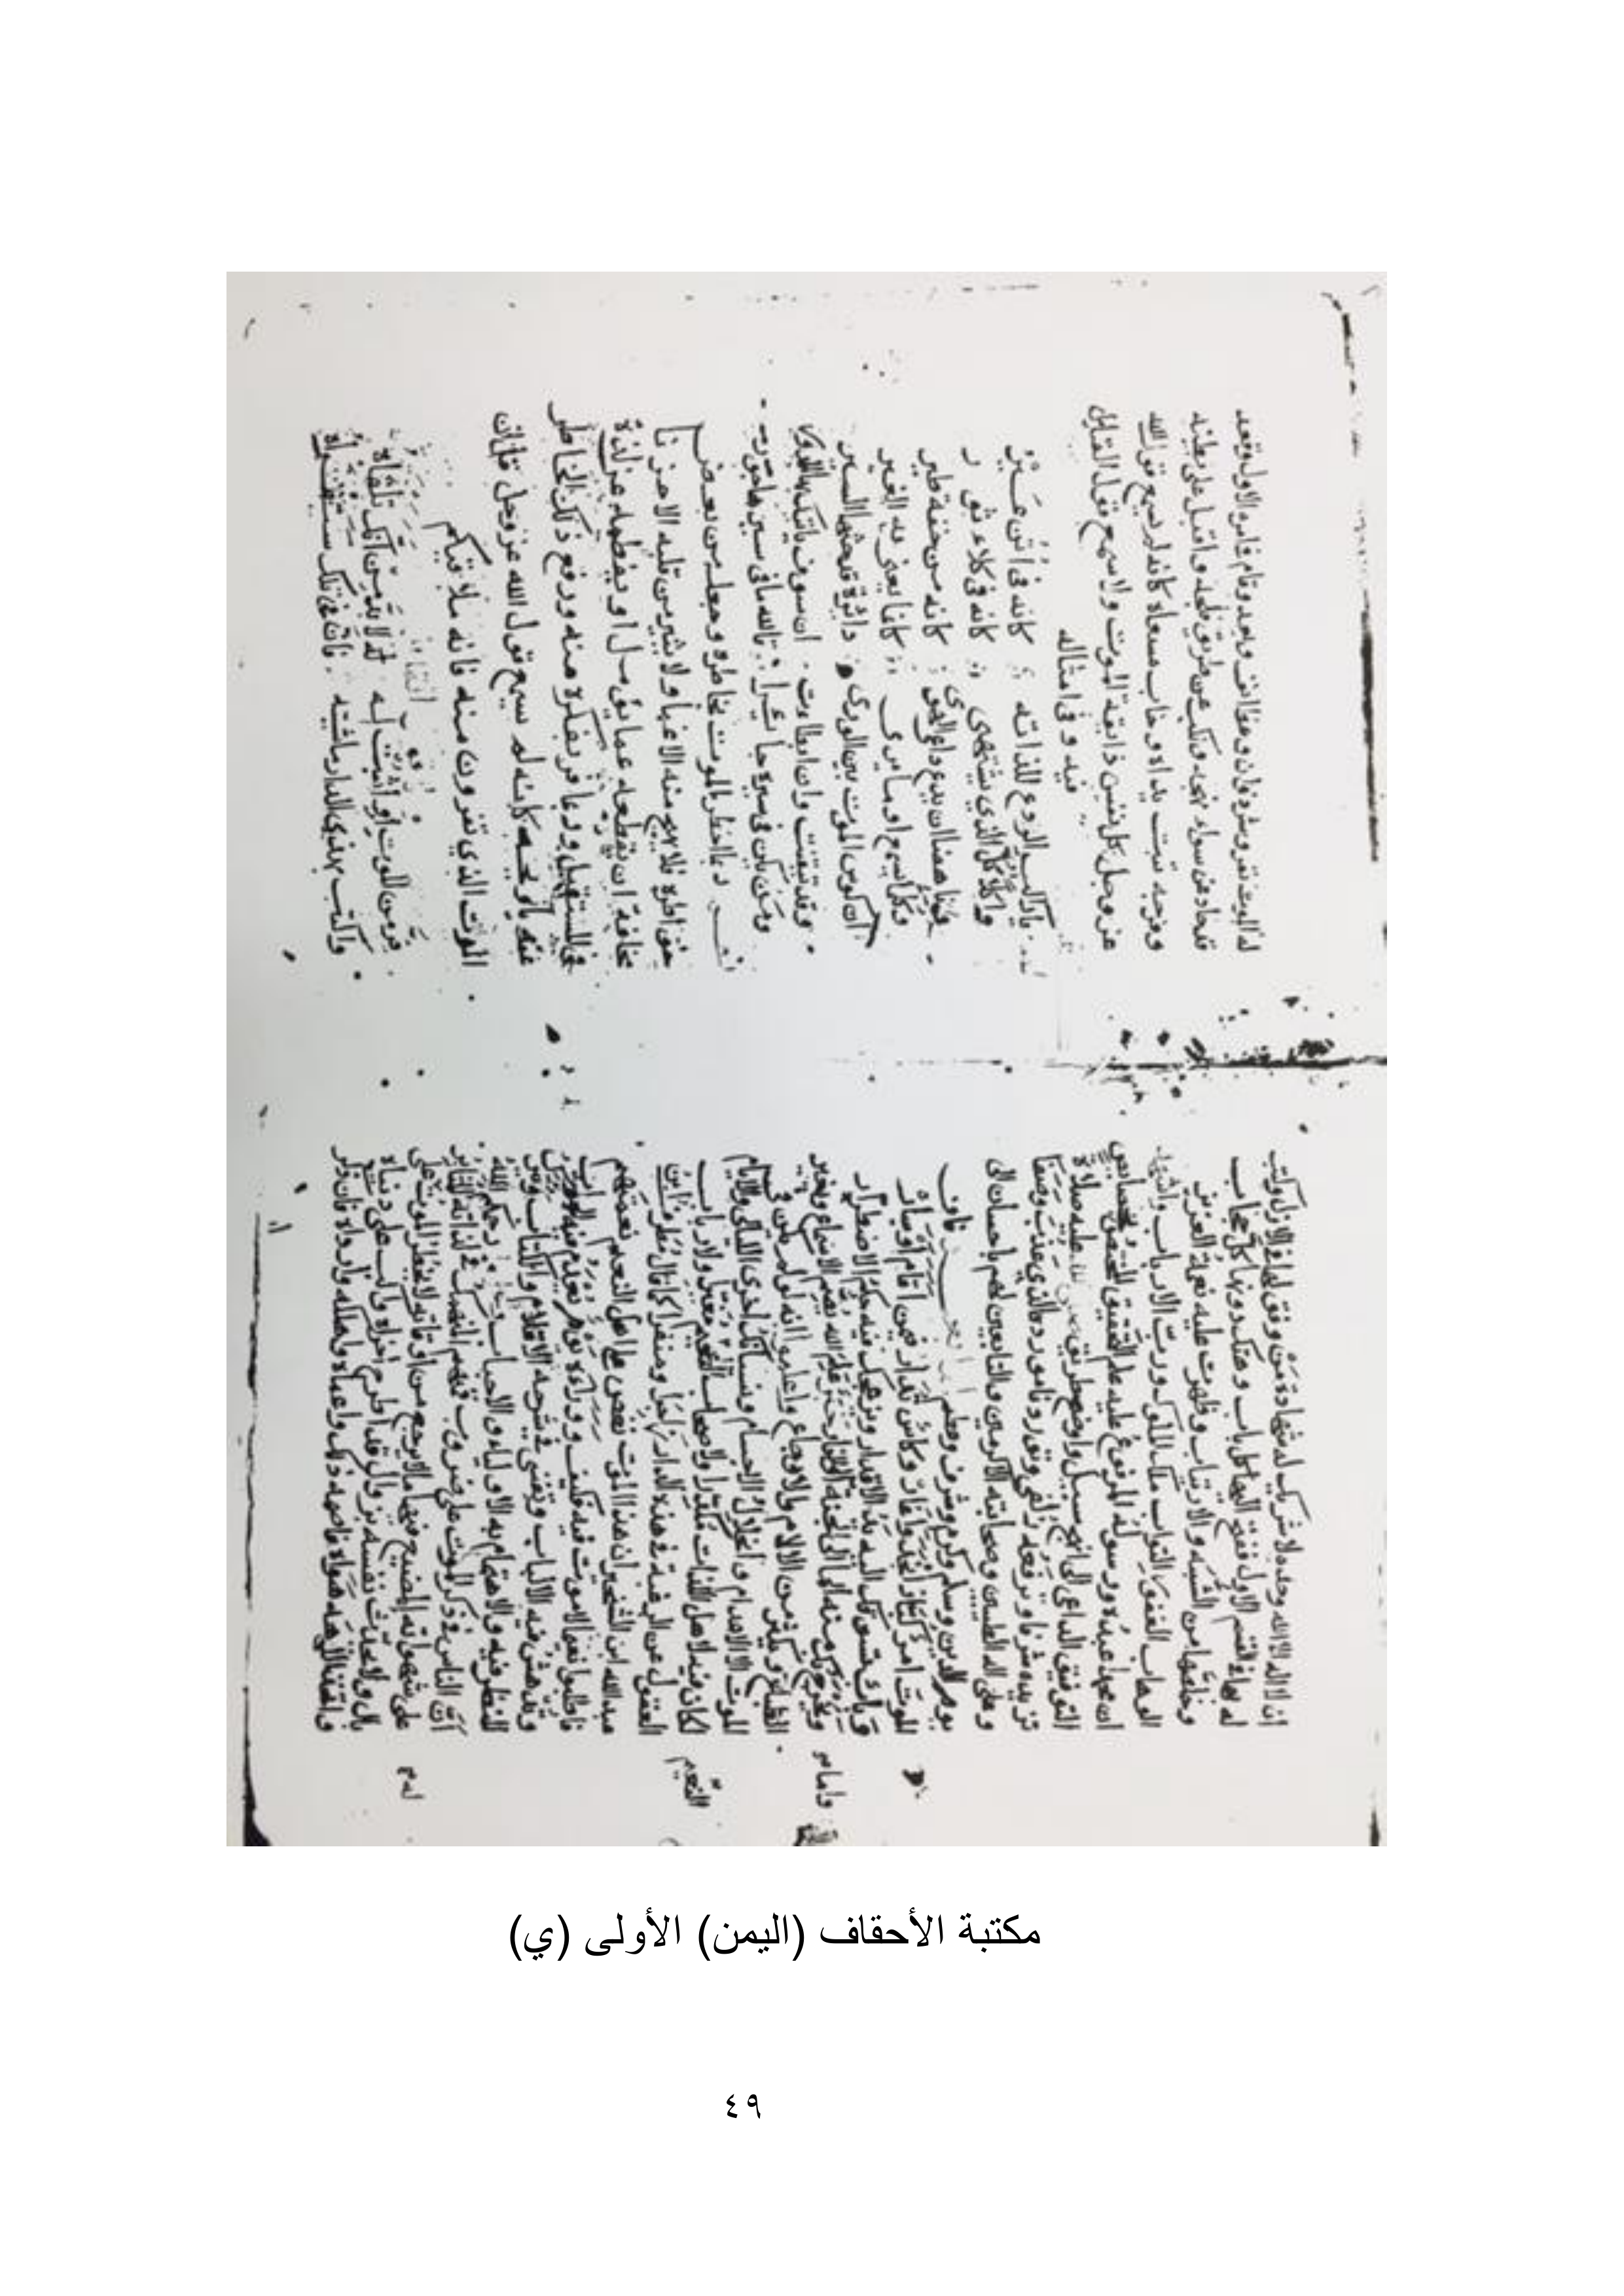 ان لا اله الا الله وحده لا شريك له شهادة من وفق لها في الازل وكتب
له بها في القسم الاول ففتح اليها كل باب وهتك دونها كل حجاب
وخلصها من الشبه والارتياب وظهرت عليه نعمة العزيز
الوهاب الغفور التواب ملك الملوك ورب الارباب واشهد
ان محمدا عبده ورسوله المرفوع عليه علم التحقيق المخصوص بخصائص
التوفيق الداعي الى انهج سبيل واوضح طريق عليه صلاة
تزيده شرفا وترفعه زلفى وتورده الذي عذب وصفا
وعلى اله الطيبين وصحابته الاكرمين والتابعين لهم باحسان الى
يوم الدين وسلم وكرم وشرف وعظم فان
الموت امر كبار لمن انجد واغار وكاس تدار فيمن اقام او سار
وباب تسوقك اليه يد الاقدار ويزعجك فيه حكم الاضطرار
ويخرج بك منه اما الى الجنة واما الى النار خبر علم الله يصم الاسماع ويغير
الطباع ويكثر من الالام والاوجاع واعلموا انه لو لم يكن في
الموت الا الاعدام وانحلال الاجسام ونسيانك اخرى الليالي والايام
لكان فيه لاهل اللذات مكدرا ولاصحاب النعيم مغيرا ولارباب
العقول عن الرغبة في هذه الدار زاجرا ومنفرا كما قال مطرف بن
عبد الله ابن الشخير ان هذا الموت نغص على اهل النعيم نعيمهم
فاطلبوا نعيما لا موت فيه فكيف ووراءه يوم يعدم فيه الجواب
وتدهش فيه الالباب وتفنى في شرحه الاقلام والكتاب
النظر فيه والاهتمام به الاولياء والاحباب رحمكم الله
ان الناس في ذكر الموت على ضروب فمنهم المنهمك في لذاته المثابر
على شهواته المضيع فيها ما لا يرجع من اوقاته لا يخطر الموت على
بال ولا يحدث نفسه بزوال قد اطرح اخراه واكب على دنياه
واتخذ الهه هواه فاصمه ذلك واعماه واهلكه وارداه فان ذكر
النعيم
له الموت نفر وشرد وان وعظ انف وبعد وقام في امره الاول وقعد
قد حاد عن سواء نهجه ونكب عن طريق فلجه واقبل على بطنه
وفرجه تبت يداه وخاب مسعاه كانه لم يسمع قول الله
عز وجل كل نفس ذايقة الموت ولا سمع قول القايل
فيه وفي امثاله
يا راكب الروع للذاته كانه في اتن عير
واكل كل الذي يشتهي كانه في كلاء ثور
وناهضا ان يدع داعي الهوى كانه من خفة طير
وكلما يسمع او ما يرى كانما يعنى به الغير
ان كوس الموت بين الورى دائرة قد حثها السير
وقد تيقنت وان ابطات ان سوف ياتيك بها الدور
ومن يكن في سيره جائرا تالله ما في سيره جور
ربما اخطر الموت بخاطره وجعله من بعض
خواطره فلا يهيج منه الا غما ولا يثير من قلبه الا حزنا
مخافة ان يقطعه عما يؤمل او يفطمه عن لذة
في المستقبل وربما فر بفكره منه ودفع ذلك الخاطر
عنه يا ويحه كانه لم يسمع قول الله عز وجل قل ان
الموت الذي تفرون منه فانه ملاقيكم
فر من الموت او اثبت له لا بد من انك تلقاه
واكتب بهذي الدار ما شيته فان في تلك ستقراه
مكتبة الأحقاف (اليمن) الأولى (ي)
٤٩